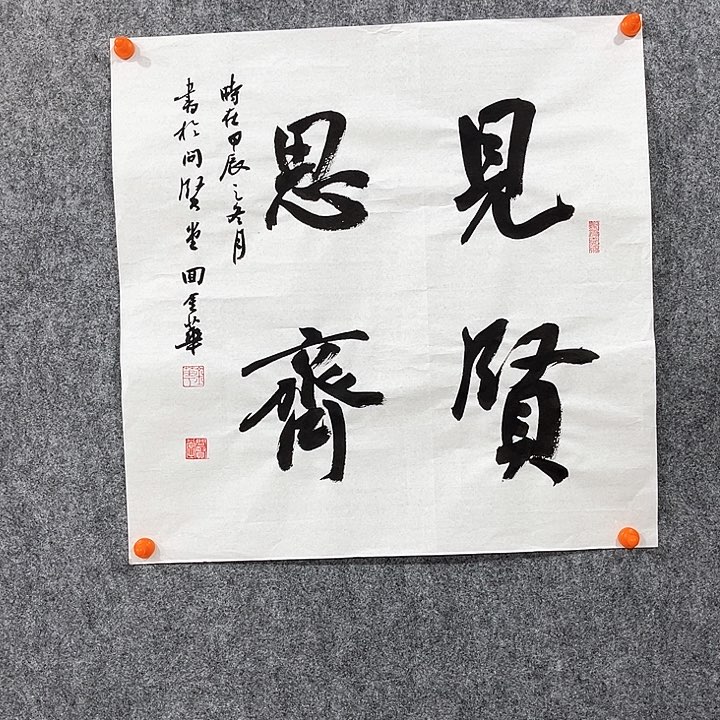 見賢
思齊
時在甲辰之冬月
書於問賢堂田金華